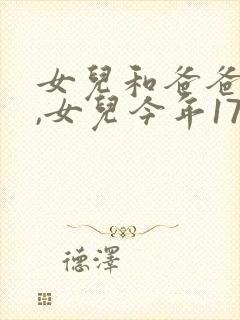 女兒和爸爸
,女兒今年17
德澤